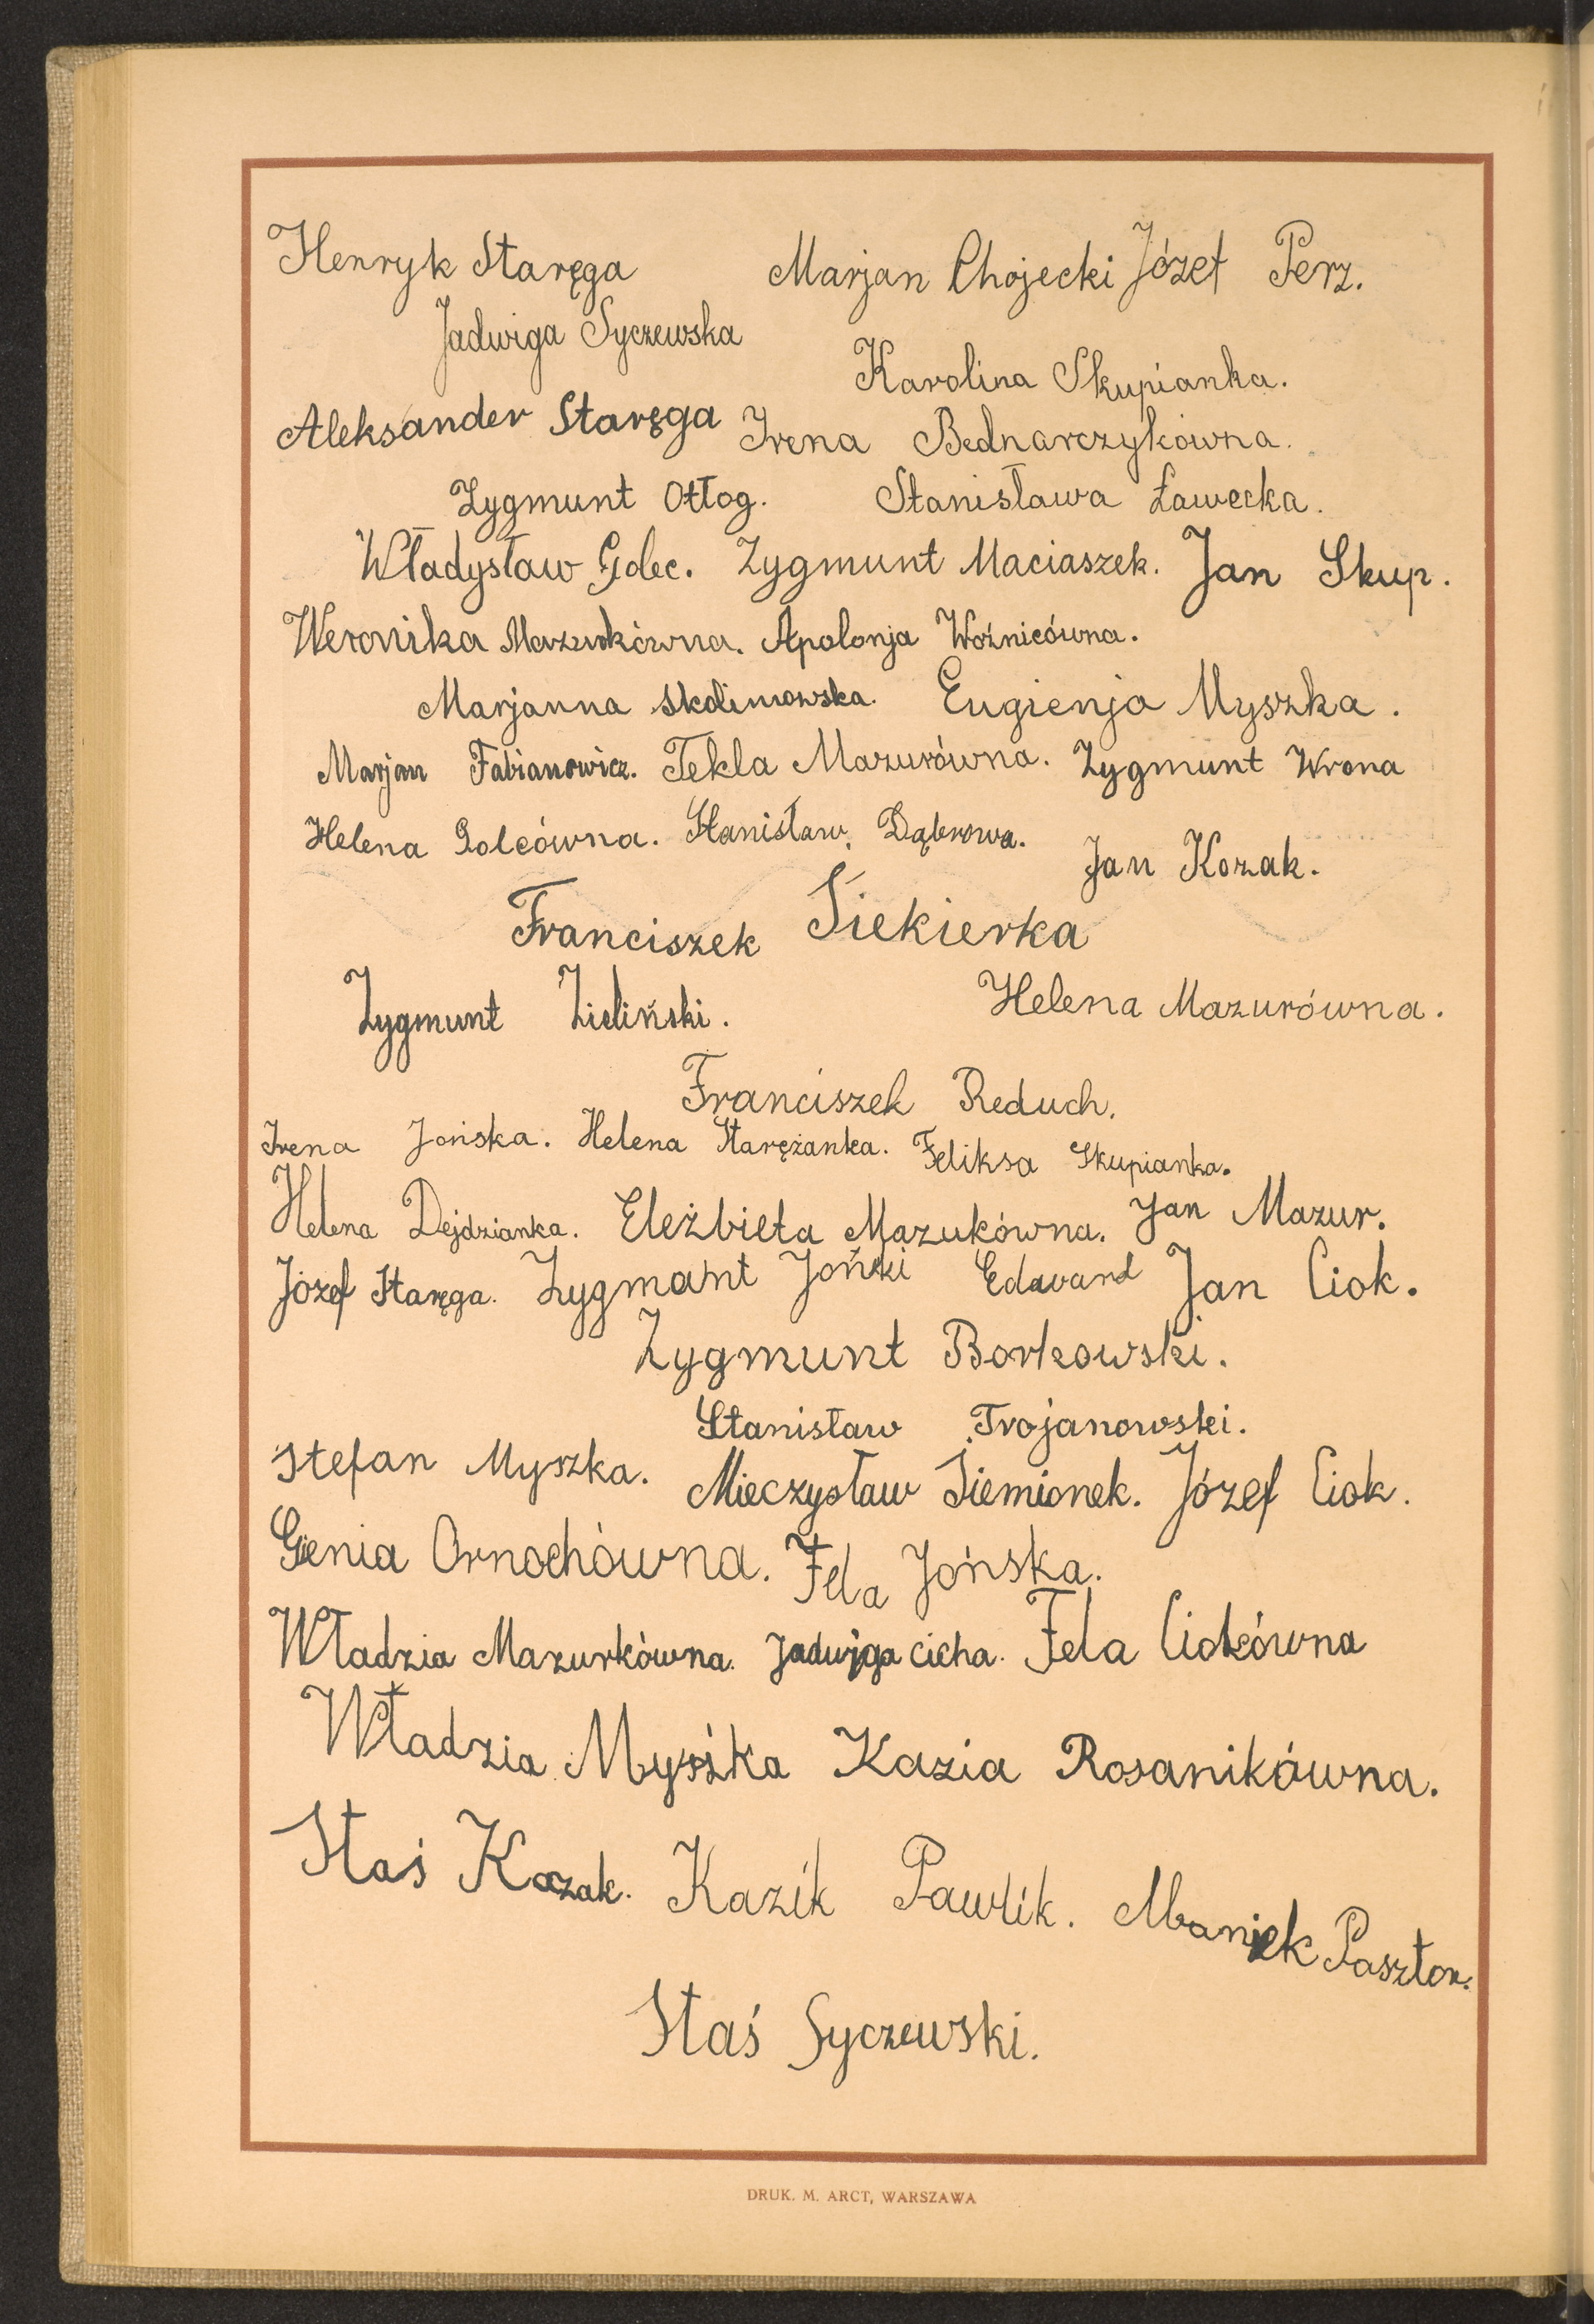 Henryk Staręga Marjan Chojecki Józef Perz.
Jadwiga Syczewska
Karolina Skupianka.
Aleksander Staręga Irena Bednarczykówna.
Zygmunt Ottog. Stanisława Ławecka.
Władysław Golec. Zygmunt Maciaszek. Jan Skup.
Weronika Mazurkówna. Apolonja Woźnicówna.
Marjanna Skolimowska. Eugienja Myszka.
Marjan Fabianowicz. Tekla Mazurówna. Zygmunt Wrona
Helena Golcówna. Stanisław Dąbrowa.
Jan Kozak.
Franciszek Siekierka
Zygmunt Zieliński. Helena Mazurówna.
Franciszek Reduch.
Irena Jońska. Helena Staręžanka. Feliksa Skupianka.
Helena Dejdzianka. Eleżbieta Mazukówna. Jan Mazur.
Józef Staręga. Zygmant Joński Edward Jan Ciok.
Zygmunt Borkowski.
Stanisław Trojanowski.
Stefan Myszka. Mieczysław Siemionek. Józef Ciok.
Gienia Ornochówna. Fela Jońska.
Władzia Mazurkówna. Jadwiga Cicha. Fela Ciokówna
Władzia Myśżka Kazia Rosanikówna.
Staś Kozak. Kazik Pawlik. Maniek Pasztor.
Staś Syczewski.
DRUK. M. ARCT, WARSZAWA